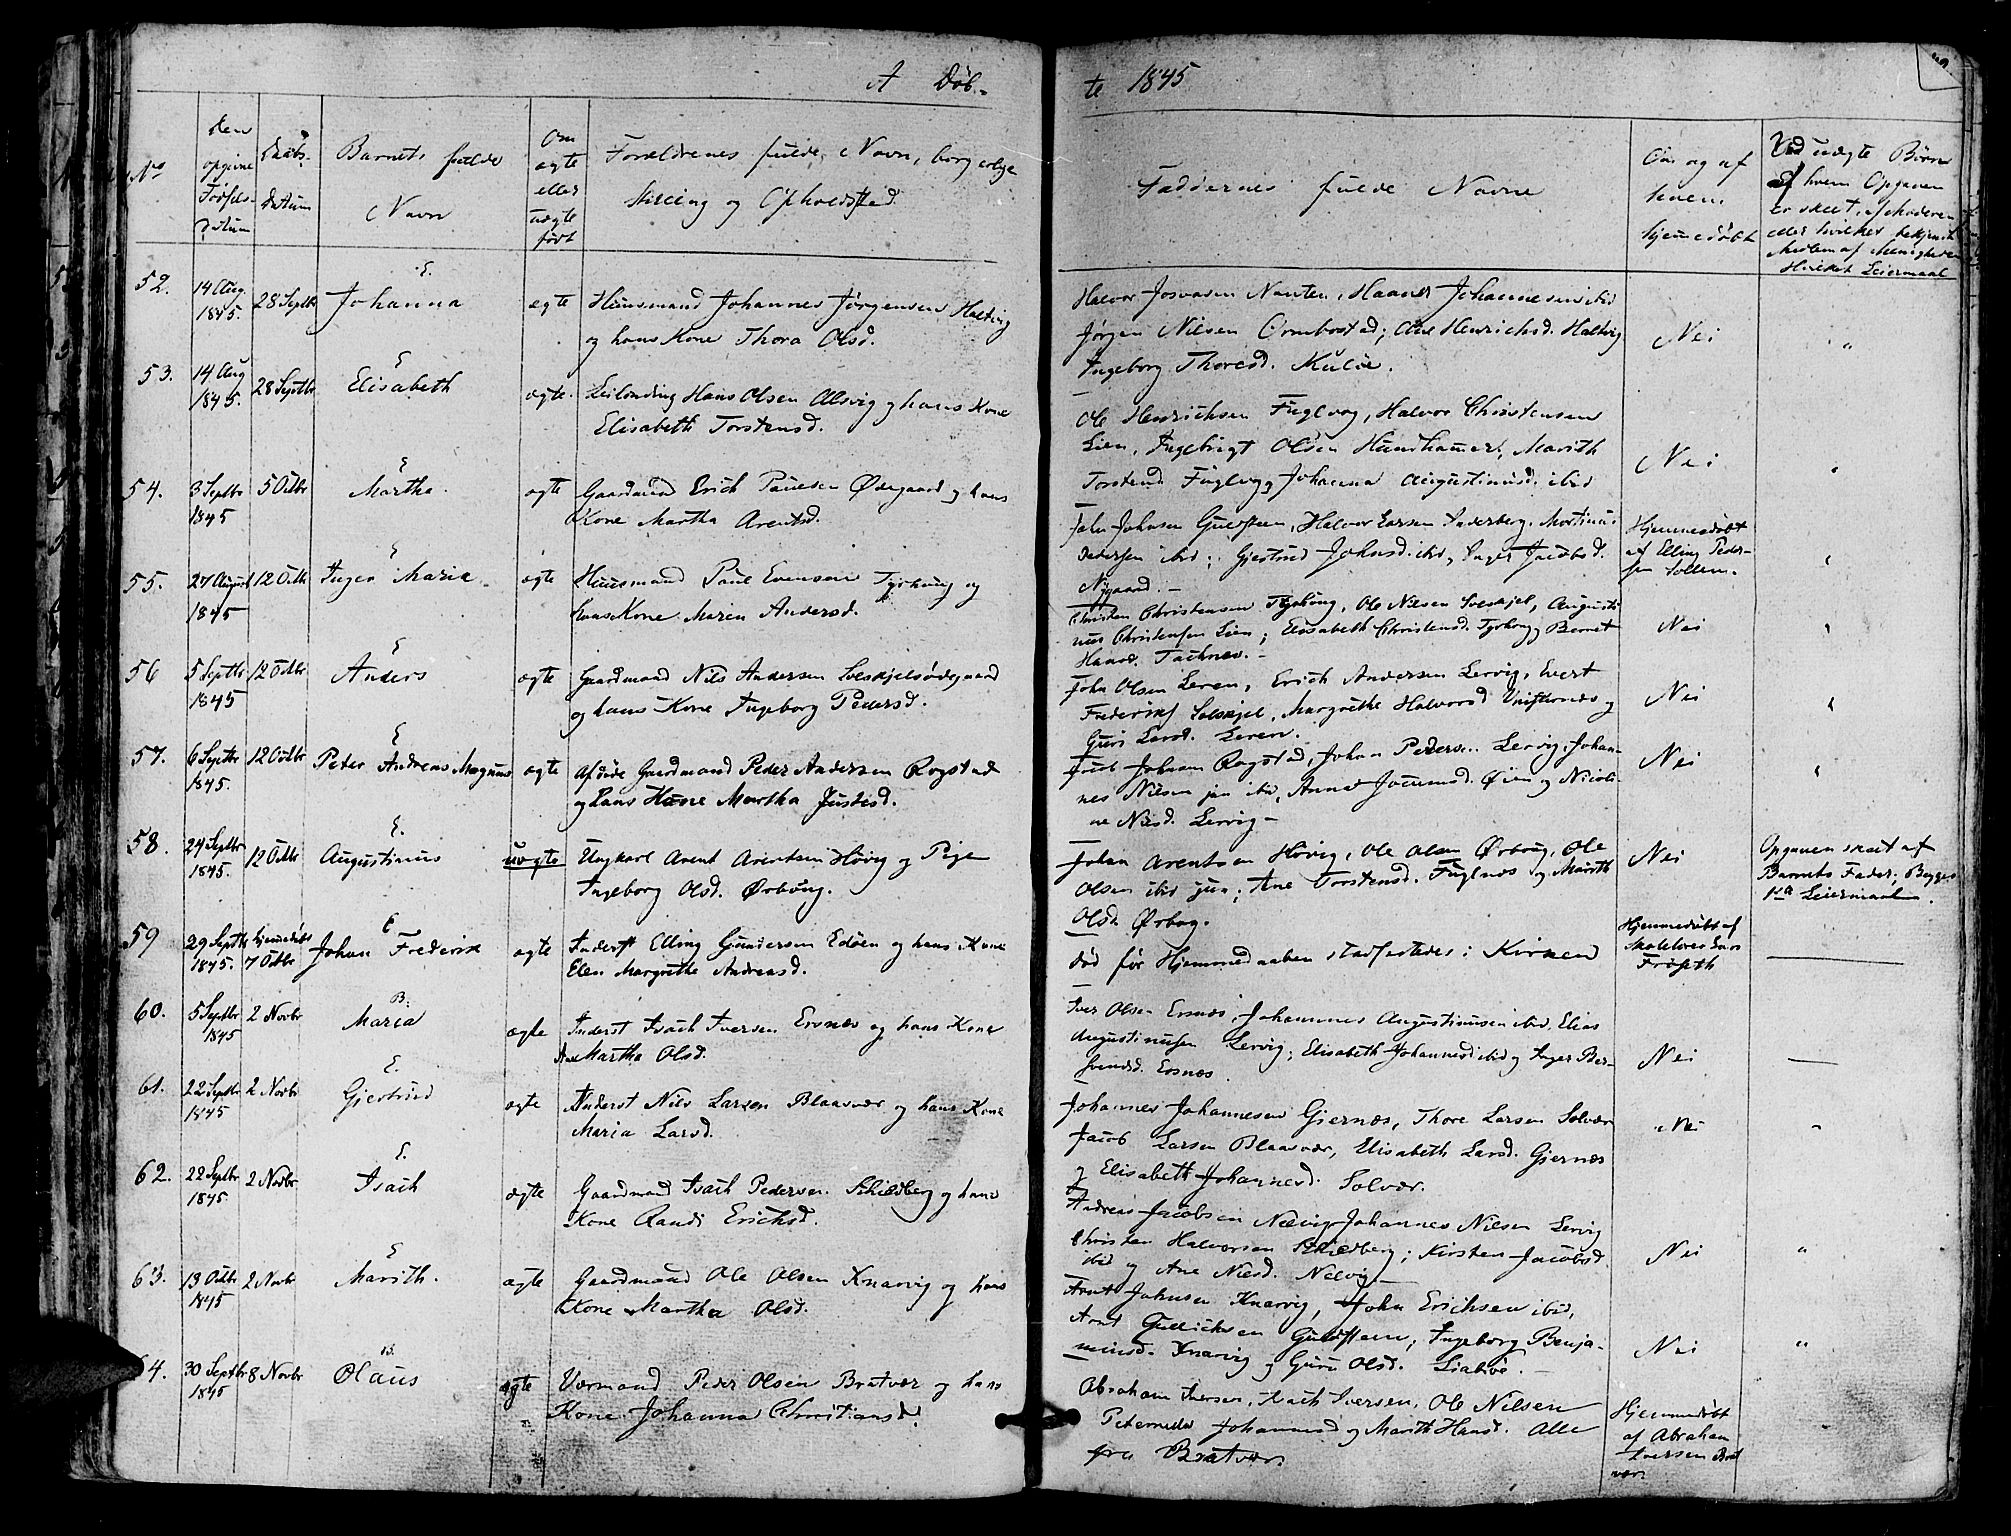 A Døb-
No
Den opgivne Fødsels-datum
Daabs-datum
Barnets fulde Navn
Om ægte eller uægte født
Forældrenes fulde Navn, borgerlige Stilling og Opholdsted
52. 14 Aug. 1845. 28 Septbr E. Johanna ægte Huusmand Johannes Jørgensen
og hans Kone Thora Olsd.
53. 14 Aug 1845. 28 Septbr E Elisabeth ægte. Leilænding Hans Olsen Alsvig og hans Kone
Elisabeth Torstensd.
54. 3 Septbr 1845 5 Octbr E Martha. ægte Gaardmand Erich Paulsen Ødegaard og hans
Kone Martha Arentsd.
55. 27 August 1845 12 Octb E Inger Maria ægte Huusmand Paul Evensen Tyrhoug og
hans Kone Maren Andersd.
56 5 Septbr 1845 12 Octbr E Anders ægte Gaardmand Nils Andersen Solskjelsødegaard
og hans Kone Ingeborg Pedersd.
57. 6 Septbr 1845. 12 Octbr E Peter Andreas Magnus ægte Afdøde Gaardmand Peder Andersen Rogstad
og hans Kone Martha Justesd.
58. 24 Septbr 1845. 12 Octbr E. Augustinus uægte Ungkarl Arent Arentsen Høvig og Pige
Ingeborg Olsd. Ørboug.
59 29 Septbr 1845. hjemmedøbt 7 Octbr E Johan Frederik ægte Inderst Elling Gundersen Edøen og hans Kone
Elen Margrethe Andreasd.
60. 5 Septbr 1845 2 Novbr B. Maria ægte Inderst Isach Iversen Ersnæs og hans Kone
Ane Martha Olsd.
61. 22 Septbr 1845 2 Novbr E. Gjertrud ægte Inderst Nils Larsen Blaasvær og hans Kone
Maria Larsd.
62. 22 Septbr 1845. 2 Novbr E. Isach ægte Gaardmand Isach Pedersen Schieldberg og hans
Kone Randi Erichsd.
63. 13 Octbr 1845 2 Novbr E Marith. ægte Gaardmand Ole Olsen Knarvig og hans
Kone Martha Olsd.
64. 30 Septbr 1845 8 Novbr B. Olaus ægte Værmand Peder Olsen Bratvær og hans
Kone Johanna Christiansd.
te 1845
Faddernes fulde Navne
Om og af hvem hjemmedøbt
Ved uægte Børn af hvem Opgaven er skeet, af Moderen eller hvilket bekjendt Medlem af Menigheden Hvilket Leiermaal
Halvor Josvasen Nanten, Johannesen ibid
Jørgen Nilsen Ormbostad; Ane Henrichsd.
Ingeborg Thoresd. Kuløe. Nei "
Ole Henrichsen Fuglvog, Halvor Christensen
Lien, Ingebrigt Olsen Hundhammer, Marith
Torstensd. Fuglvog Johanna Augustinusd. ibid Nei "
John Johnsen Guldsteen, Halvor Larsen Martinus
Pedersen ibid; Gjertrud Johnsd. ibid, Inger Jacobsd.
Nygaard. - Hjemmedøbt af Elling Pedersen Sollem. "
Christen Christensen Tyrhoug, Ole Nilsen Solskjel, Augusti
nus Christensen Lien; Elisabeth Christensd. Tyrhoug Berret
Hansd. - Nei "
John Olsen Leren, Erich Andersen Lervig, Evert
Frederiks Solskjel, Margrethe Halvorsd og
Guri Larsd. Leren. Nei "
Just Johnsen Rogstad, Johan Pedersen Lervig, Johan-
nes Nilsen jun ibid, Anna Øien og Nicoli-
ne Nilsd. Lervig - Nei "
Johan Arentsen Høvig, Ole Olsen Ørboug, Ole
Olsen ibid jun; Ane Torstensd. Fuglnæs og Marith
Olsd. Ørboug. Nei Opgaven skeet af Barnets Fader; Begges 1ste Leiermaal.
død før Hjemmedaaben stadfæstedes i Kirken Hjemmedøbt af Skolelærer Lars
Iver Olsen Ersnæs, Johannes Augustinusen ibid, Elias
Augustinusen Lervig; Elisabeth Johannesd ibid og Inger
Ersnæs. Nei
Johannes Johannesen Gjernæs, Thore Larsen Solvær
Jacob Larsen Blaasvær, Elisabeth Larsd. Gjernæs
og Elisabeth Johannesd. Solvær. Nei "
Andreas Jacobsen Nelvig Johannes Nilsen Lervig
Christen Halvorsen Schieldberg; Kirsten Jacobsd.
ibid og Ane Nilsd. Nelvig - Nei "
Arnt Johnsen Knarvig, John Erichsen ibid,
Arnt Gulichsen Guldsteen; Ingeborg Benja-
minsd. Knarvig og Guru Olsd. Liabøe. Nei "
Abraham Iversen, Isach Iversen, Ole Nilsen
Peternella Johannesd og Marith Hansd. Alle
fra Bratvær. Hjemmedøbt af Abraham Iversen Bratvær.